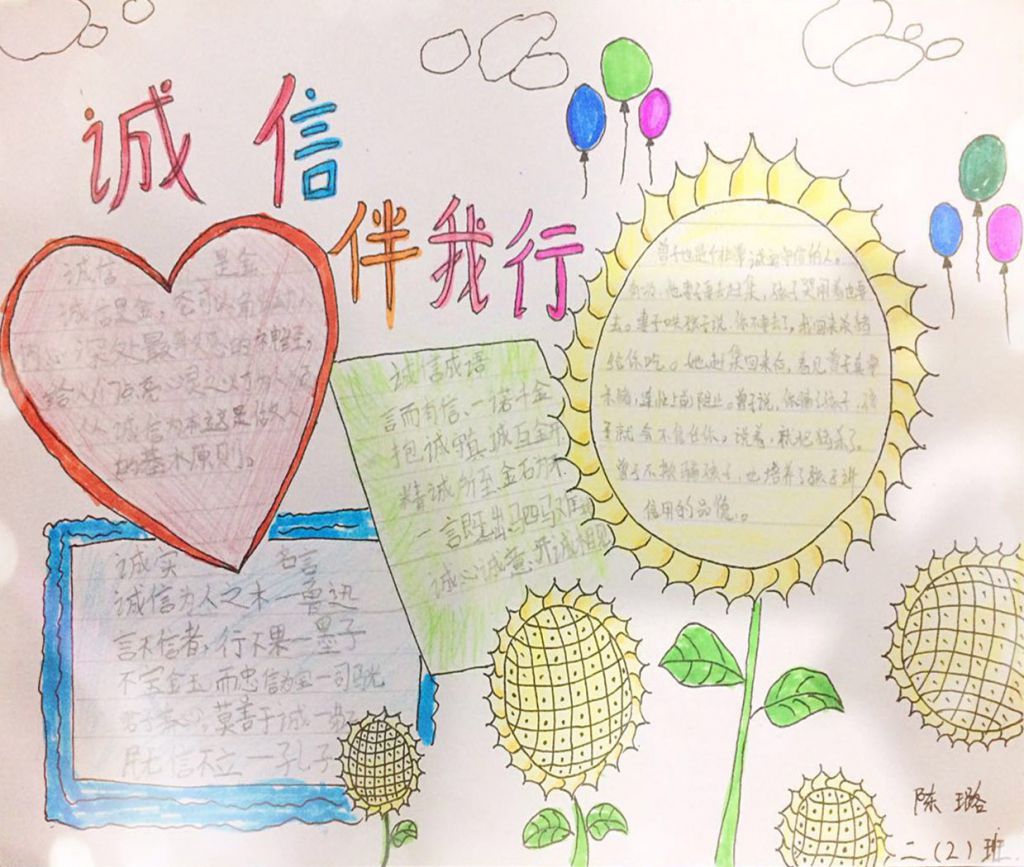 诚信
伴我行
诚信 是金
诚信是金，它可以
内心深处最
给人们点亮心灵之灯为人
以诚信为本这是做人
的基本原则。
诚信成语
言而有信、一诺千金
抱诚守真 诚
精诚所至金石为
一言既出驷马难追
诚心诚意 开诚相见
曾子也是个非常诚实守信的人。
有一次，他妻子要去赶集，孩子哭闹着也要
去。妻子哄孩子说，你不要去了，我回来杀猪
给你吃。她赶集回来后，看见曾子真要
杀猪，连忙上前阻止。曾子说，你骗了孩子，孩
子就会不信任你。说着，就把猪杀了。
曾子不欺骗孩子，也培养了孩子讲
信用的品德。
诚实 名言
诚信为人之本一鲁迅
言不信者，行不果一墨子
不宝金玉而忠信为宝一司马光
君子养心，莫善于诚一
民无信不立一孔子
陈璐
二（2）班